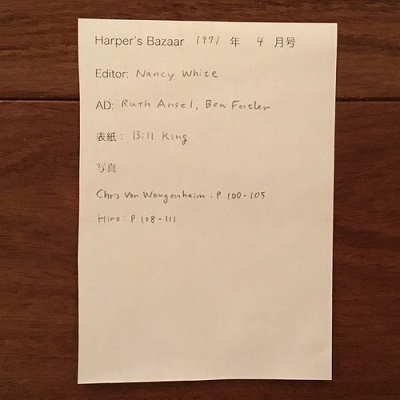 Harper's Bazaar 1971 年 4 月号
Editor: Nancy White
AD: Ruth Ansel, Bea Feitler
表紙: Bill King
写真
Chris Von Wangenheim : P 100-105
Hiro : P 108-111